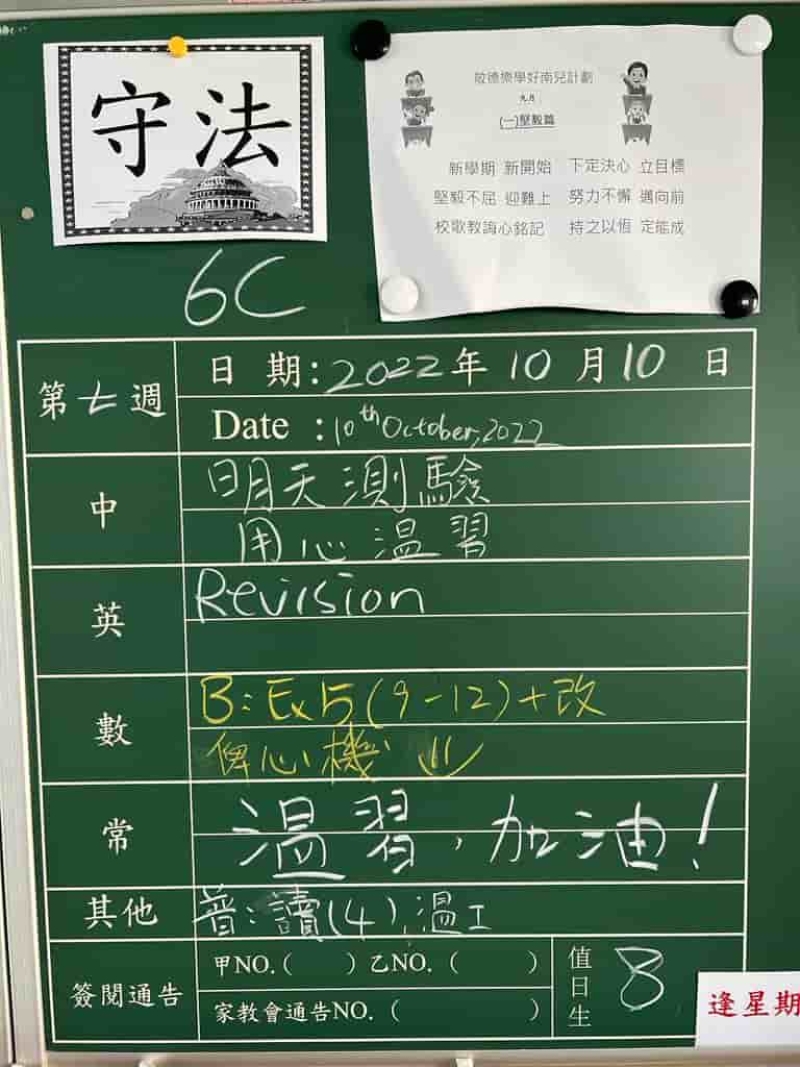 守法
敬德樂學好南兒計劃
九月
(一)堅毅篇
新學期 新開始 下定決心 立目標
堅毅不屈 迎難上 努力不懈 邁向前
校歌教誨心銘記 持之以恆 定能成
6C
第七週
日期:2022年10月10日
Date :10th October,2022
中
明天測驗
用心溫習
英
Revision
數
B:Ex5(9-12)+改
俾心機
常
溫習,加油!
其他
普:讀(4),溫工
簽閱通告
甲NO.( )乙NO.( )
家教會通告NO.( )
值日生
8
逢星期